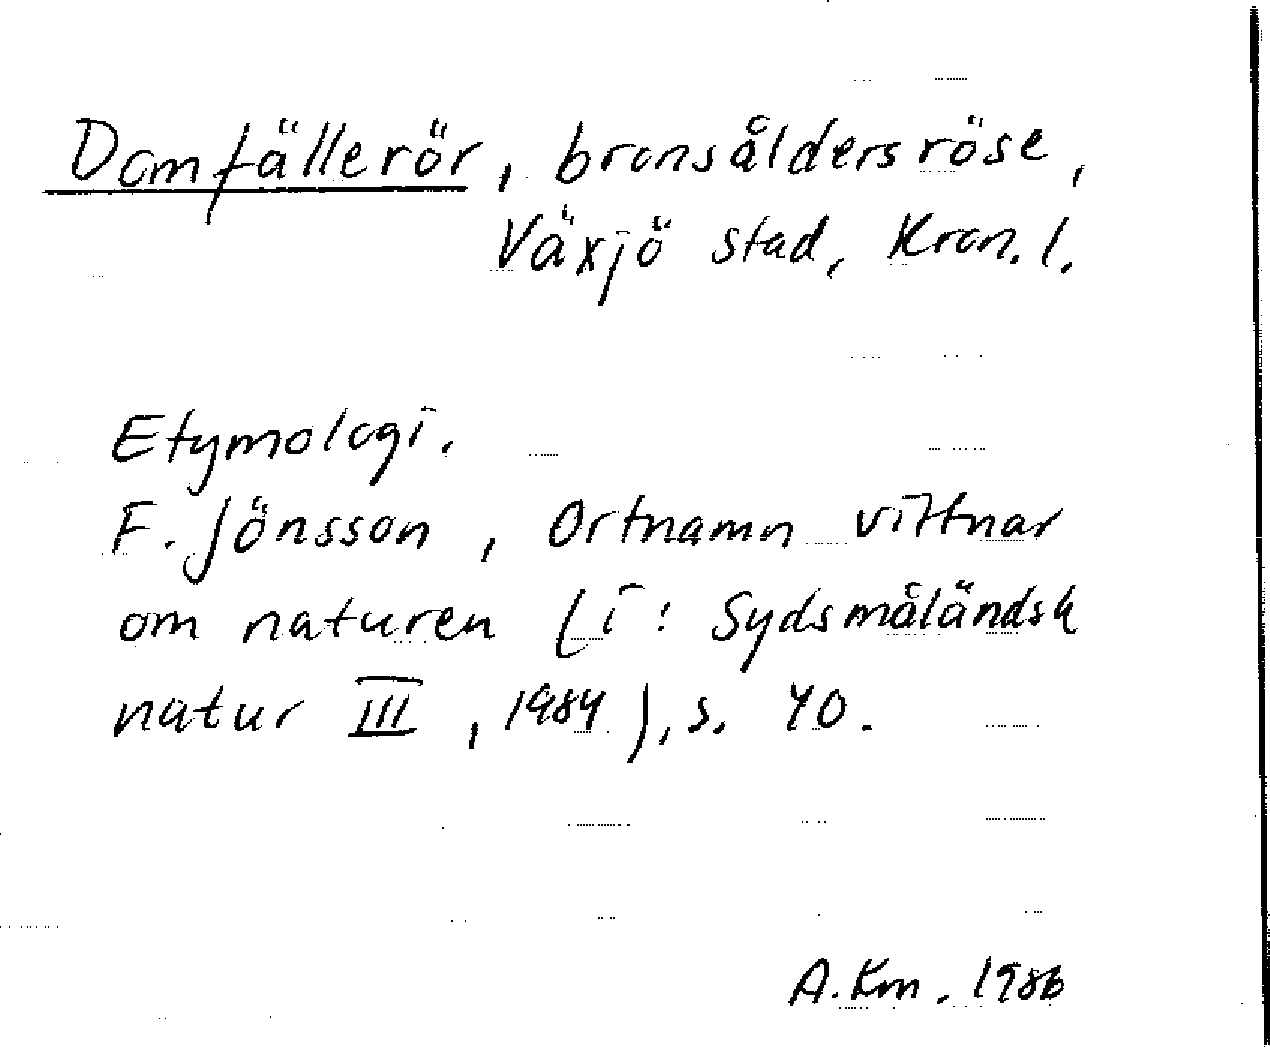 Domfällerör, bronsåldersröse,
Växjö stad, Kron. l.
Etymologi.
F. Jönsson, Ortnamn vittnar
om naturen (i: Sydsmåländsk
natur III, 1984), s. 40.
A. Km. 1986